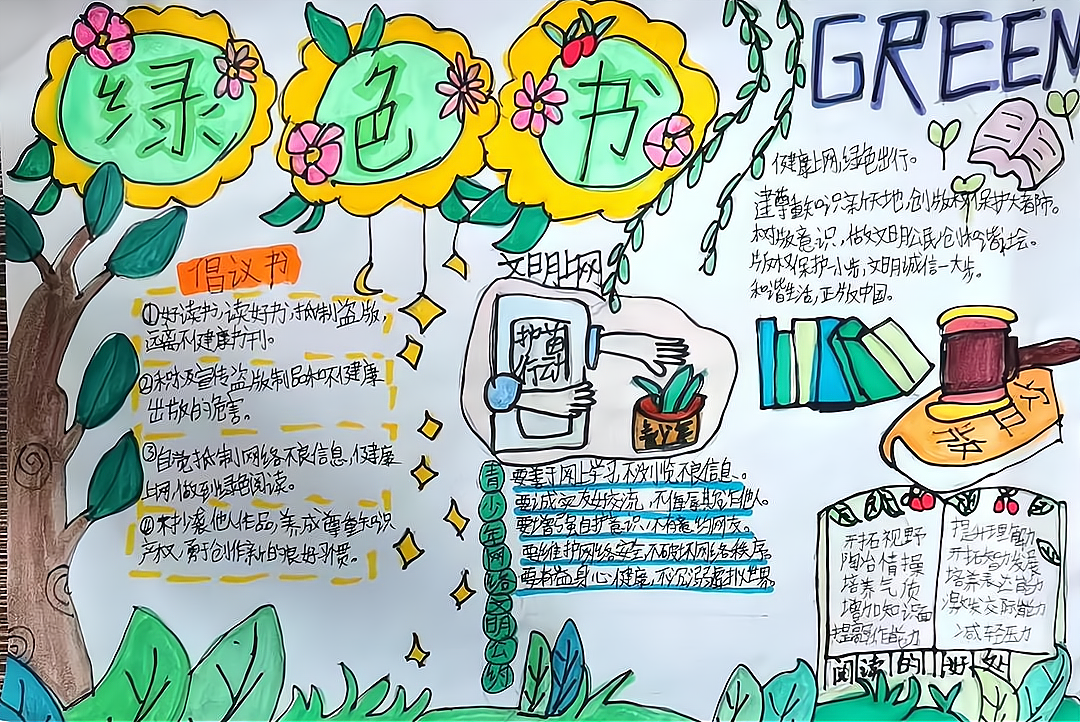 绿色书
GREEN
健康上网,绿色出行。
建尊重知识新天地,创版权保护大都市。
树版意识,做文明公民,创和谐社会。
版权保护一小步,文明诚信一大步。
和谐生活,正版中国。
倡议书
①好读书,读好书,抵制盗版,
远离不健康书刊。
②积极宣传盗版制品和不健康
出版的危害。
③自觉抵制网络不良信息,健康
上网,做到绿色阅读。
④不抄袭他人作品,养成尊重知识
产权,勇于创作新的良好习惯。
文明上网
护苗
行动
青少年网络文明公约
要善于网上学习,不浏览不良信息。
要诚实友好交流,不侮辱欺诈他人。
要增强自护意识,不随意约网友。
要维护网络安全,不破坏网络秩序。
要有益身心健康,不沉溺虚拟世界。
开拓视野
陶冶情操
培养气质
增加知识面
提高写作能力
提升理解能力
开拓智力发展
培养表达能力
激发交际能力
减轻压力
阅读的好处